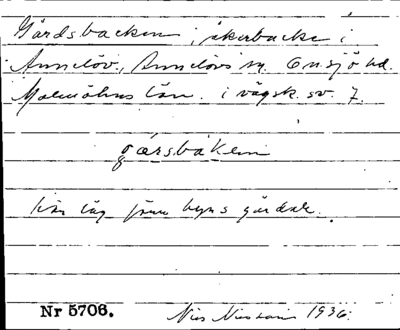 Gårdsbacken, åkerbacke i
Annelöv, Annelövs sn. Onsjö hd.
Malmöhus län. i vägsk. sv. 7.
gårsbaken
här låg förr byns gårdar.
Nr 5706. Nils Nilsson 1936.